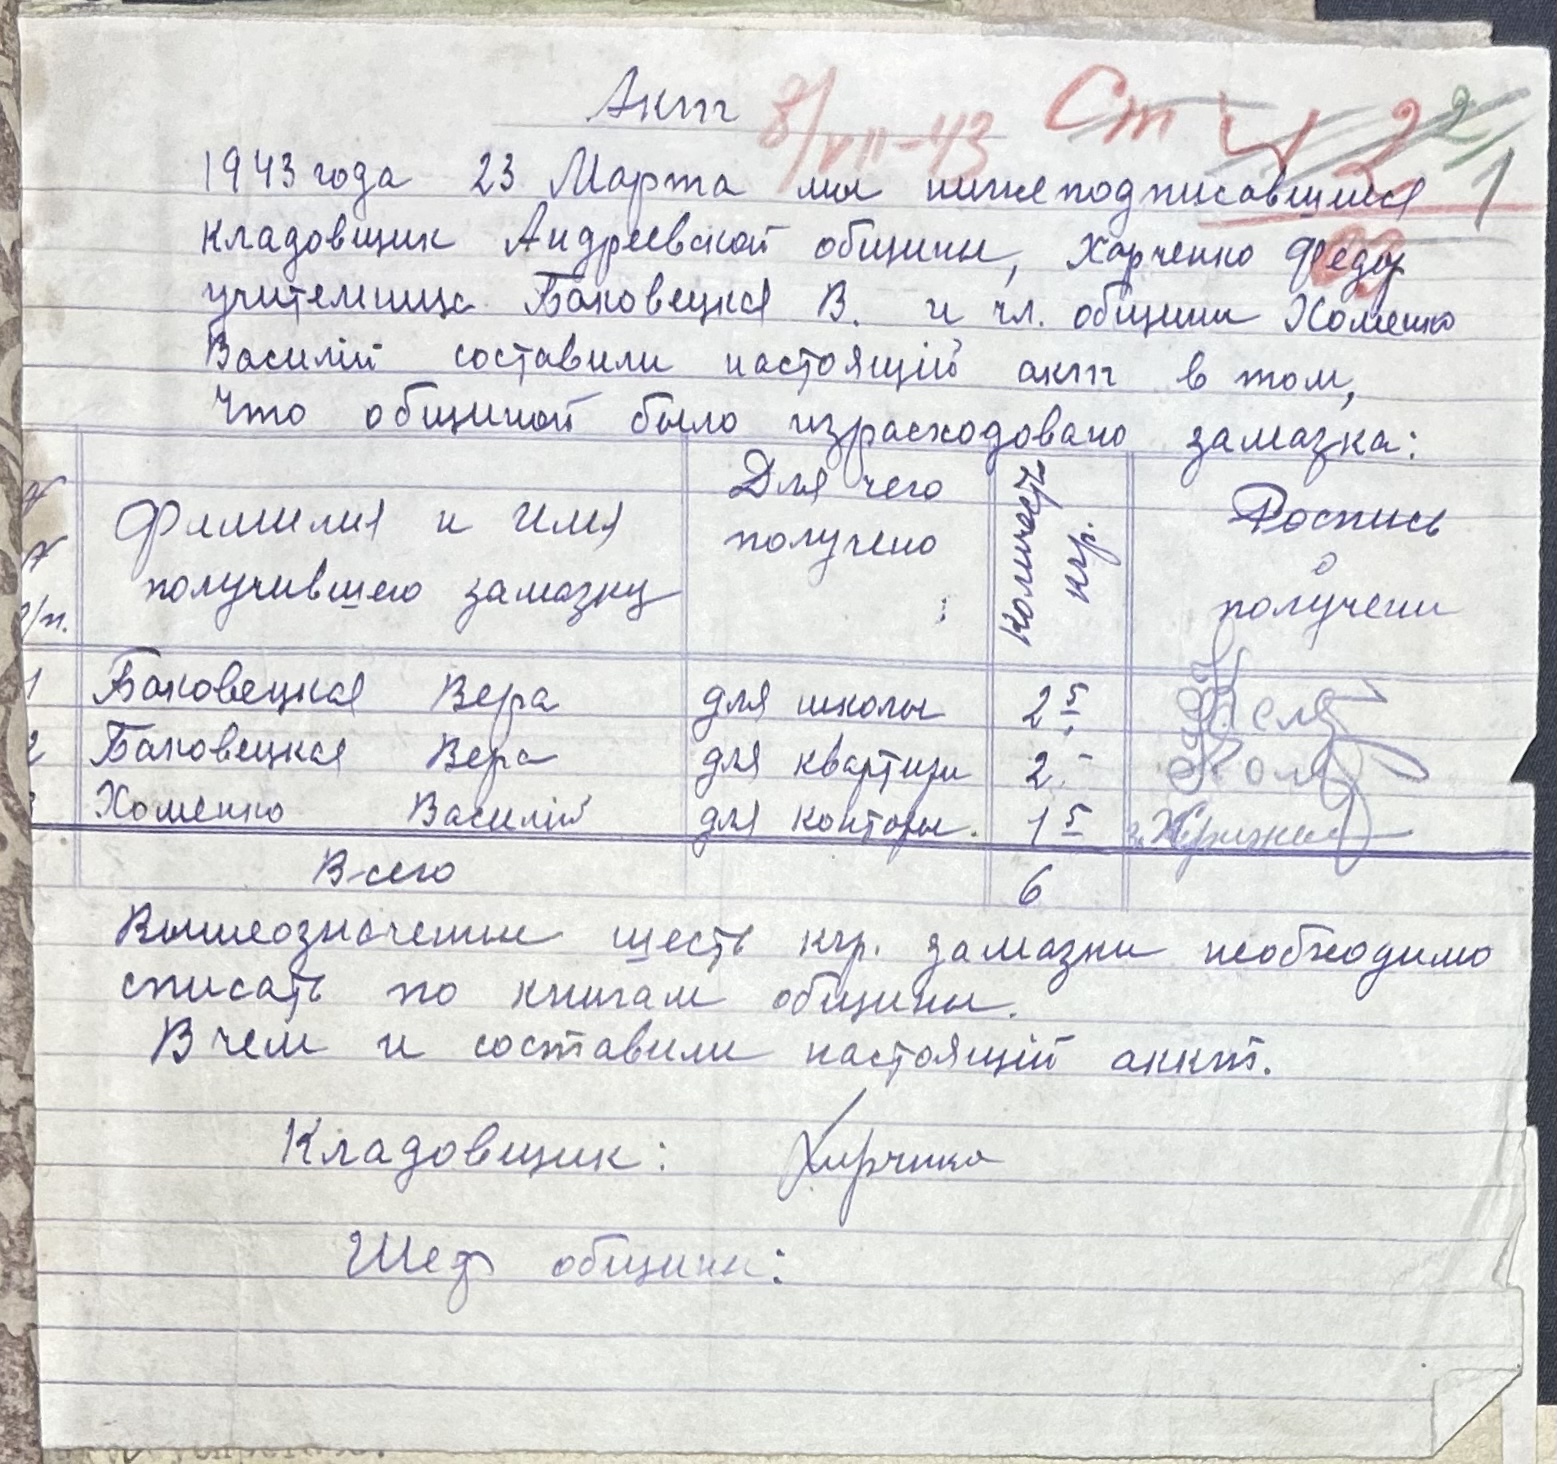 Акт
8/VII-43
Ст
1943 года 23 Марта мы нижеподписавшиеся
кладовщик Андреевской общины, Харченко Федор
учительница Баковецкая В. и чл. общины Хоменко
Василій составили настоящій акт в том,
что общиной было израсходовано замазка:
№ № п/п. Фамилия и имя получившего замазку Для чего получено Количество кгр. Роспись о получени
1 Баковецкая Вера для школы 2 5
2 Баковецкая Вера для квартиры 2.-
3 Хоменко Василій для конторы. 1 5
Всего 6
Вышеозначеные шесть кгр. замазки необходимо
списать по книгам общины.
В чем и составили настоящій аккт.
Кладовщик: Харченко
Шеф общины: